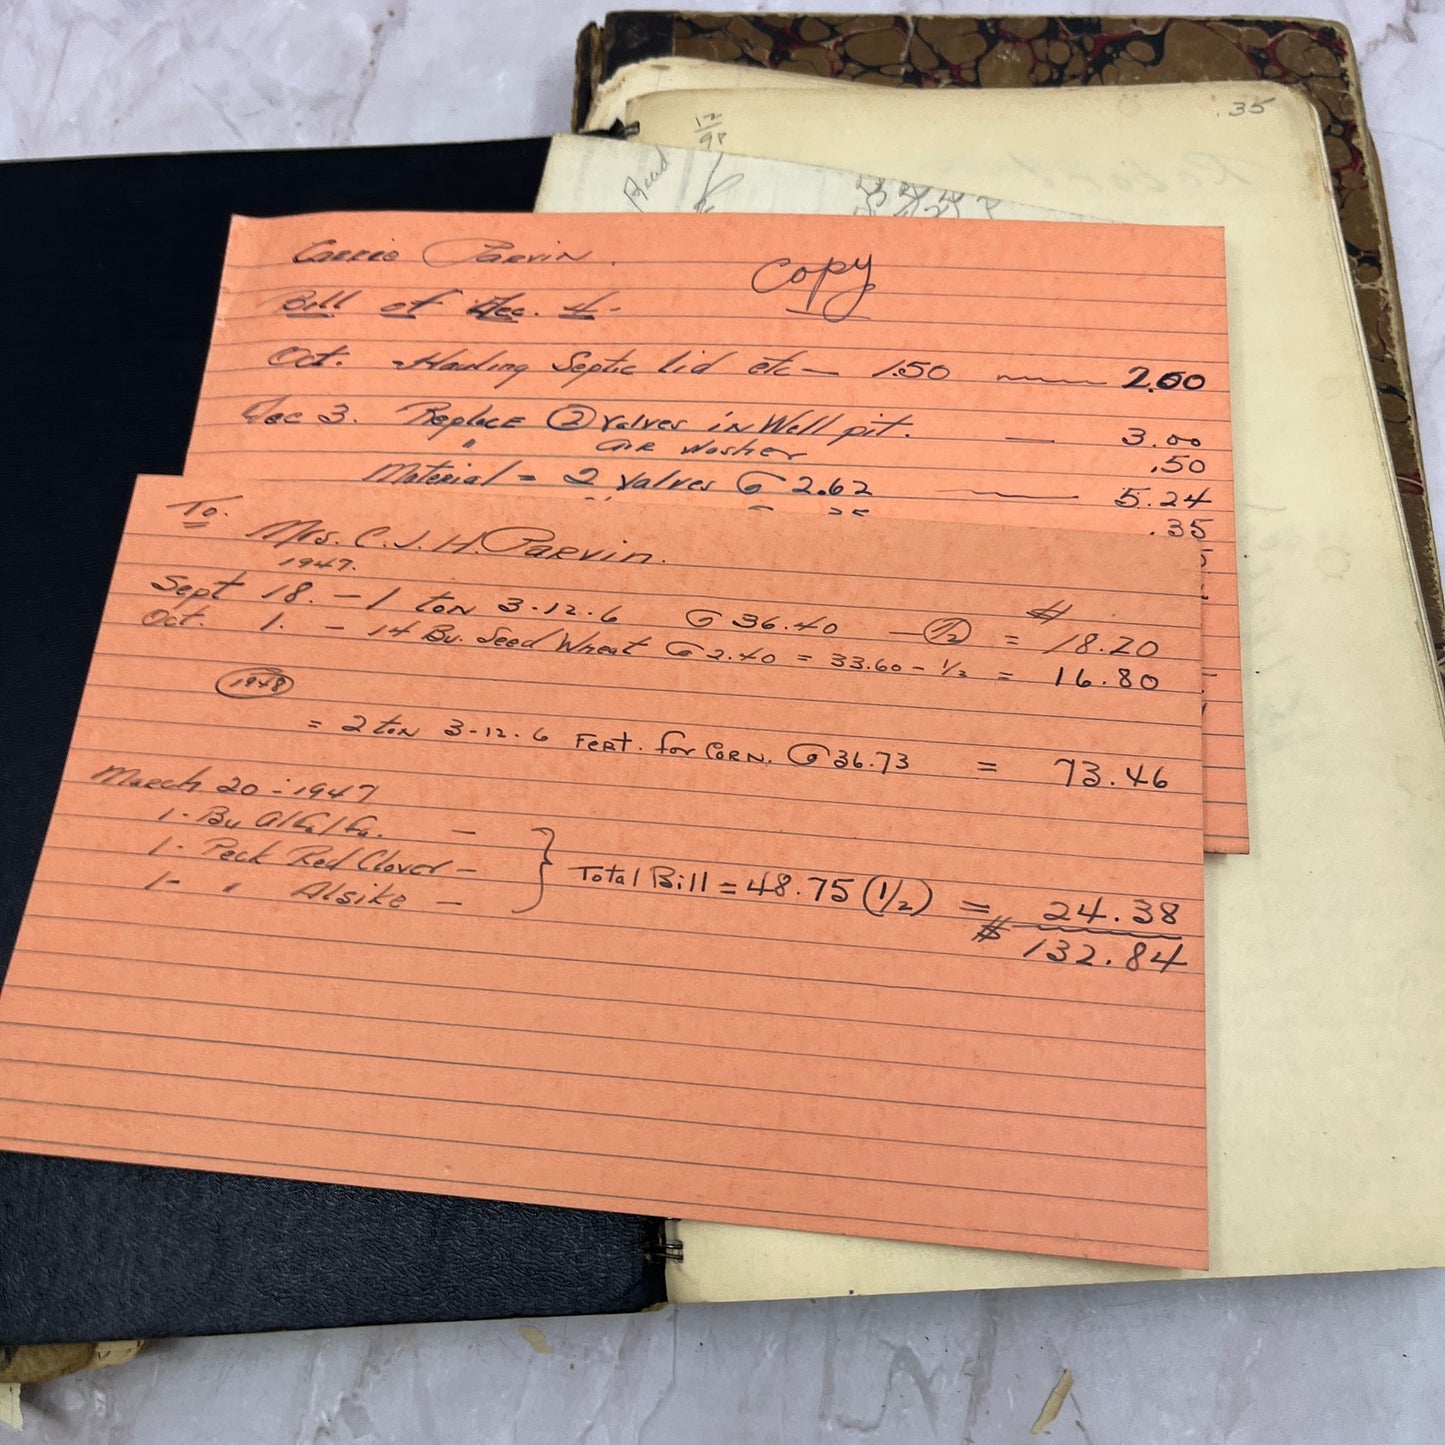 .35
12
98
Carrie Parvin.
Copy
Bill of Dec. 4-
Oct. Hauling Septic lid etc — 1.50 — 2.00
Dec 3. Replace ② Valves in Well pit. — 3.00
" air washer .50
Material = 2 Valves @ 2.62 — 5.24
.35
To.
Mrs. C. J. H. Parvin.
1947.
Sept 18. - 1 ton 3-12-6 @ 36.40 - 1/2 = $ 18.20
Oct. 1. - 14 Bu. Seed Wheat @ 2.40 = 33.60 - 1/2 = 16.80
1948
= 2 ton 3-12-6 Fert. for Corn. @ 36.73 = 73.46
March 20 - 1947
1 - Bu Alfalfa. —
1 - Peck Red Clover —
1 - " Alsike —
Total Bill = 48.75 (1/2) = 24.38
$ 132.84